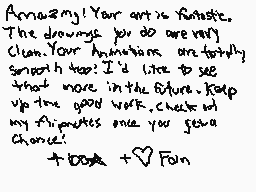 Amazing! Your art is fantastic.
The drawings you do are very
clean. Your Animations are totally
smooth too! I'd like to see
that more in the future. Keep
up the good work. Check out
my flipnotes once you get a
chance!
+ + ♡ Fan